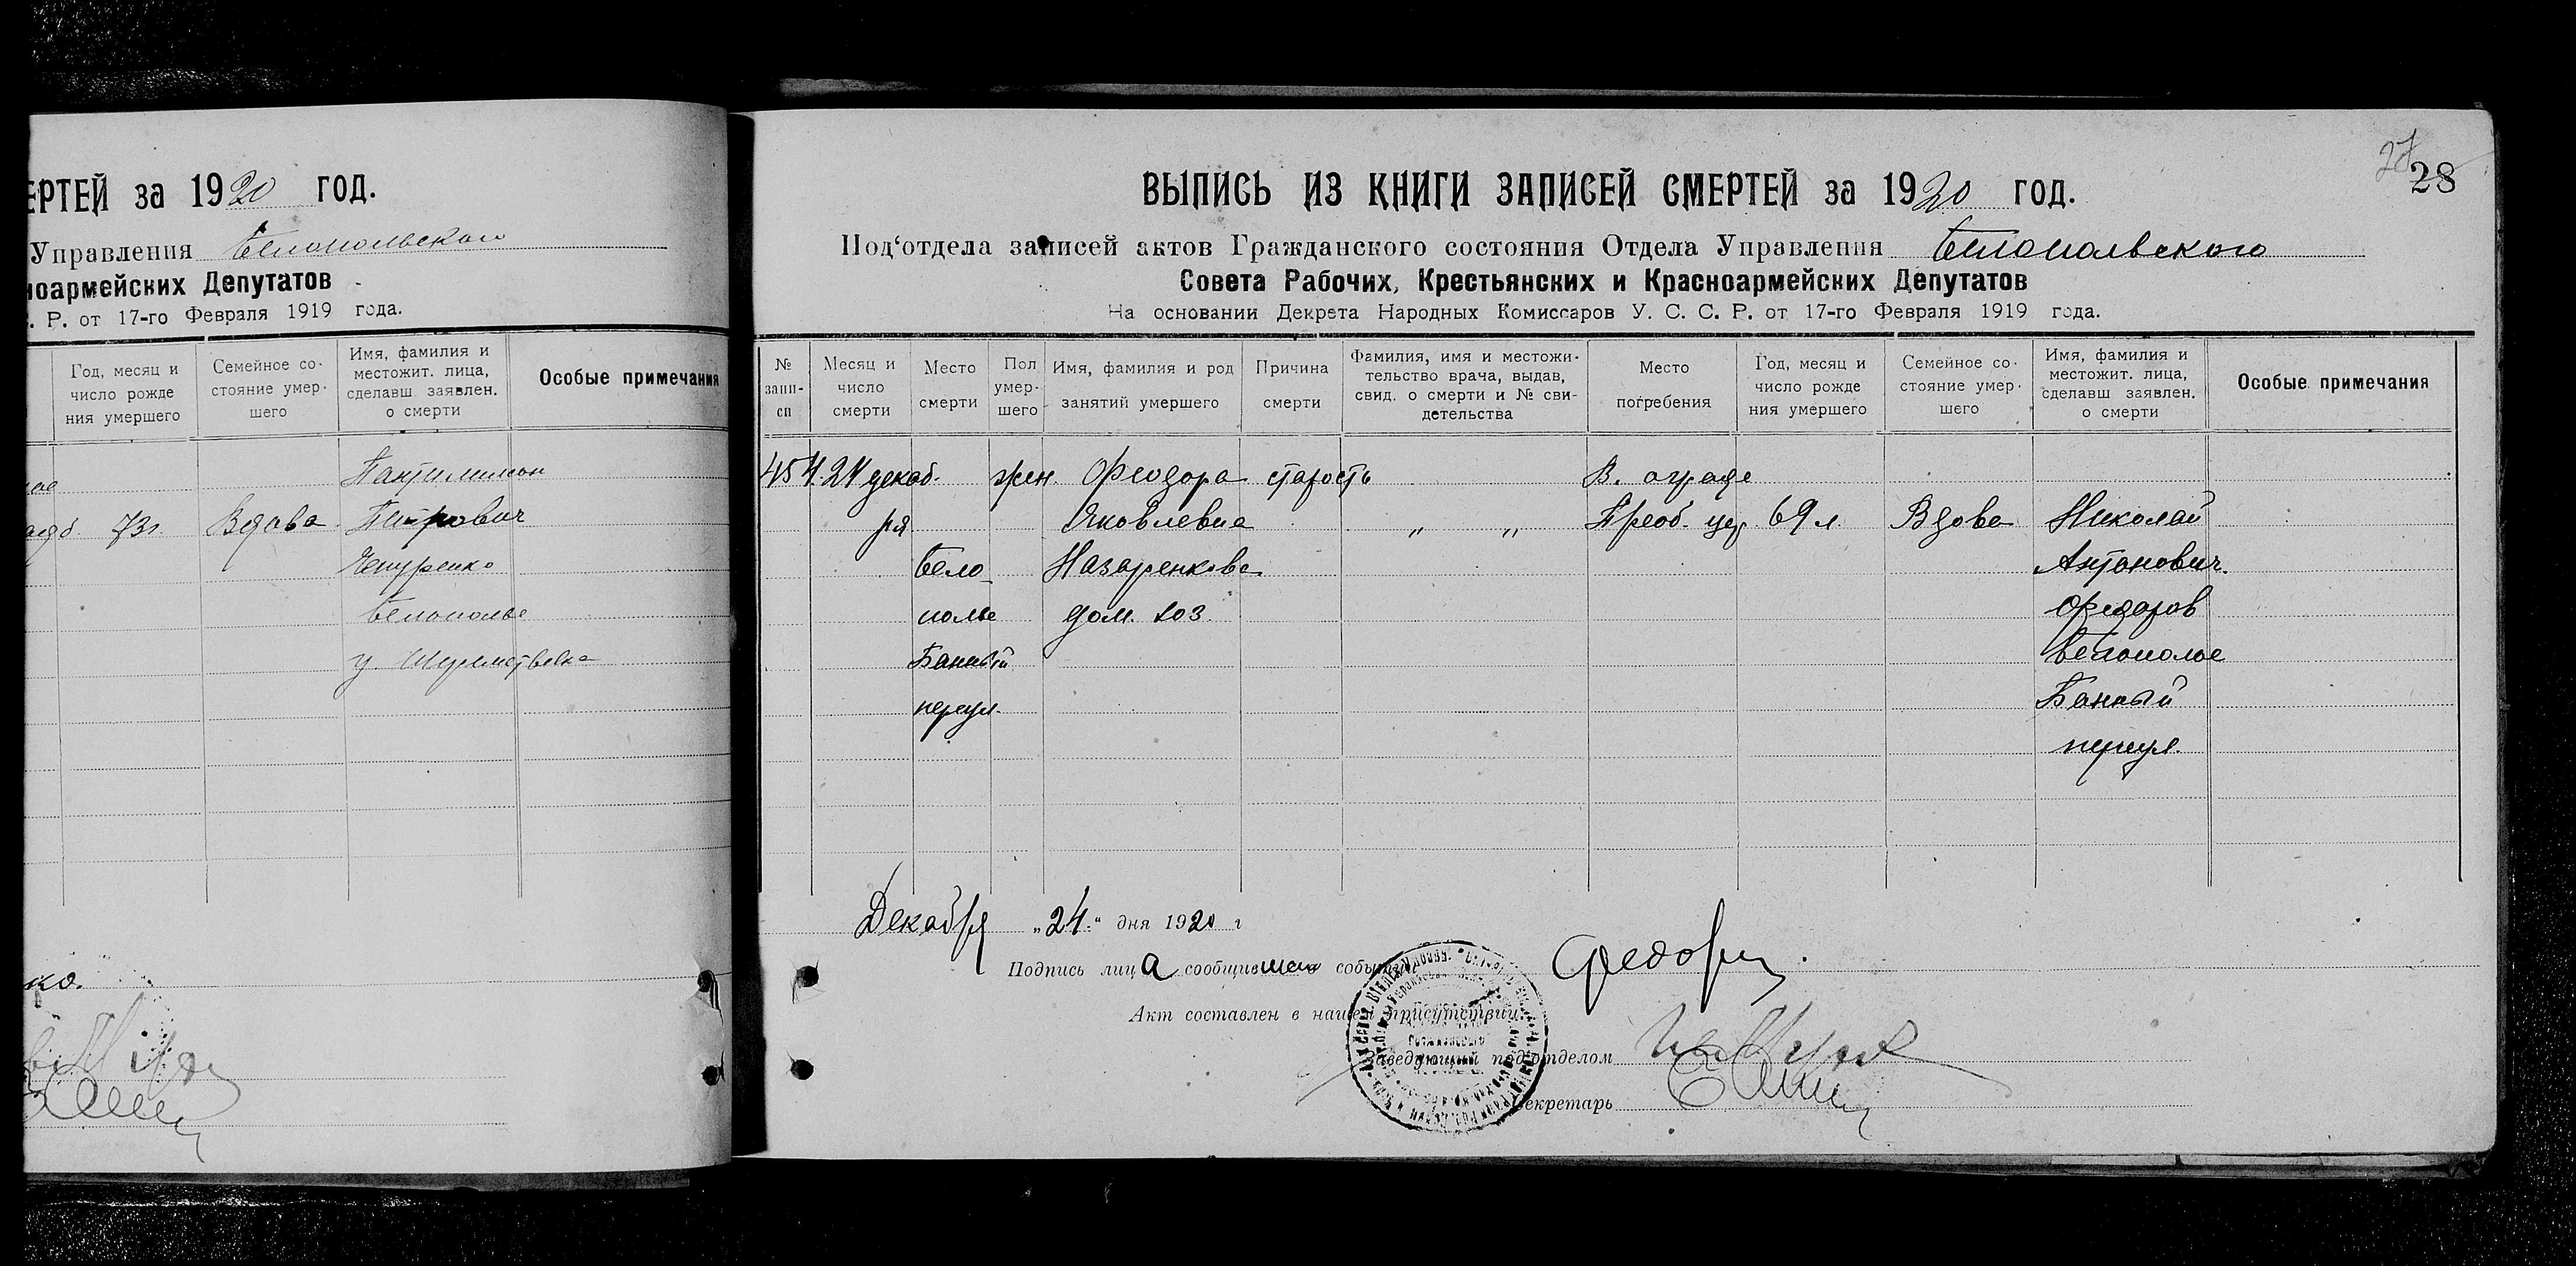 ЕРТЕЙ за 1920 год.
Управления Белопольского
ноармейских Депутатов
. Р. от 17-го Февраля 1919 года.
Год, месяц и число рожде ния умершего
Семейное со- стояние умер- шего
Имя, фамилия и местожит. лица, сделавш заявлен. о смерти
Особые примечания
73 г.
Вдова
Пантилимон
Петрович
Белополье
ко.
27
28
ВЫПИСЬ ИЗ КНИГИ ЗАПИСЕЙ СМЕРТЕЙ за 1920 год.
Под‘отдела записей актов Гражданского состояния Отдела Управления Белопольского
Совета Рабочих, Крестьянских и Красноармейских Депутатов
На основании Декрета Народных Комиссаров У. С. С. Р. от 17-го Февраля 1919 года.
№ запи- си
Месяц и число смерти
Место смерти
Пол умер- шего
Имя, фамилия и род занятий умершего
Причина смерти
Фамилия, имя и местожи- тельство врача, выдав, свид. о смерти и № сви- детельства
Место погребения
Год, месяц и число рожде ния умершего
Семейное со- стояние умер- шего
Имя, фамилия и местожит. лица, сделавш заявлен. о смерти
Особые примечания
454. 24 декаб- жен. Феодора старость В. ограде
ря Яковлевна „ „ Преоб. цер. 69 л. Вдова Николай
Бело- Назаренкова Антонович.
полье дом. хоз. Федоров
Банный Белополье
переул. Банный
переул.
Декабря „24“ дня 1920 г
Подпись лица сообщившего событие Федоров
Акт составлен в нашем присутствии:
Заведующий подотделом
Секретарь